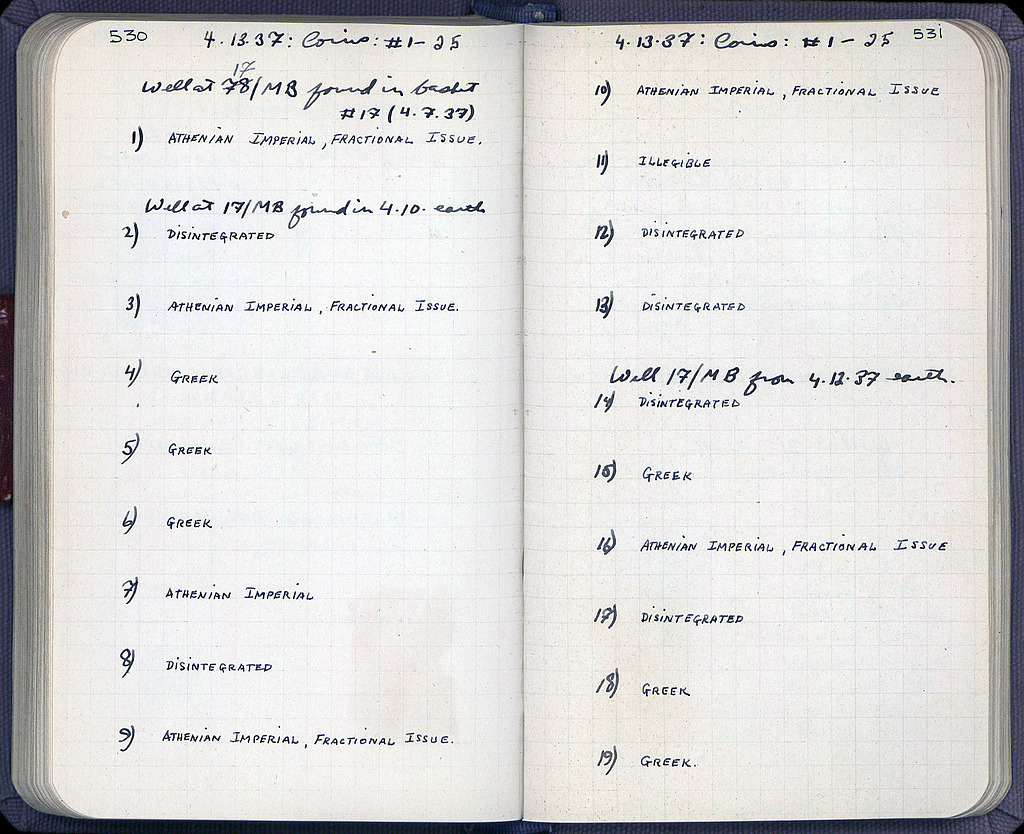 530
4.13.37: Coins: #1-25
17
Well at 78/MB found in basket
#17 (4.7.37)
1) ATHENIAN IMPERIAL, FRACTIONAL ISSUE.
Well at 17/MB found in 4.10. earth
2) DISINTEGRATED
3) ATHENIAN IMPERIAL, FRACTIONAL ISSUE.
4) GREEK
5) GREEK
6) GREEK
7) ATHENIAN IMPERIAL
8) DISINTEGRATED
9) ATHENIAN IMPERIAL, FRACTIONAL ISSUE.
531
4.13.37: Coins: #1-25
10) ATHENIAN IMPERIAL, FRACTIONAL ISSUE
11) ILLEGIBLE
12) DISINTEGRATED
13) DISINTEGRATED
Well 17/MB from 4.12.37 earth.
14) DISINTEGRATED
15) GREEK
16) ATHENIAN IMPERIAL, FRACTIONAL ISSUE
17) DISINTEGRATED
18) GREEK
19) GREEK.